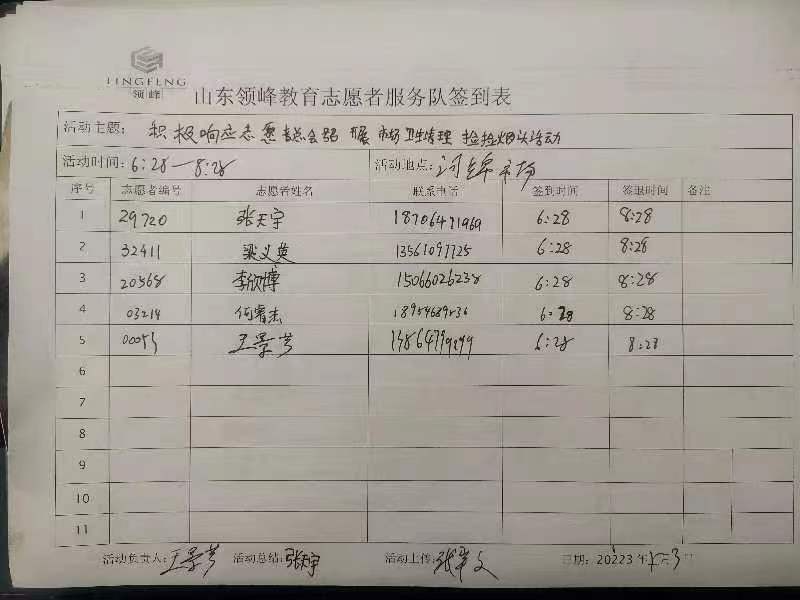 LINGFENG
领峰
山东领峰教育志愿者服务队签到表
活动主题: 积极响应志愿者总会号召 开展市场卫生清理 捡捡烟头活动
活动时间: 6:28—8:28 活动地点: 市场
序号 志愿者编号 志愿者姓名 联系电话 签到时间 签退时间 备注
1 29720 张天宇 18706471969 6:28 8:28
2 32411 梁义英 13561097725 6:28 8:28
3 20568 李欣博 15066026238 6:28 8:28
4 03214 何睿杰 6:28 8:28
5 王景芳 6:28 8:28
6
7
8
9
10
11
活动负责人: 王景芳 活动总结: 张天宇 活动上传: 日期: